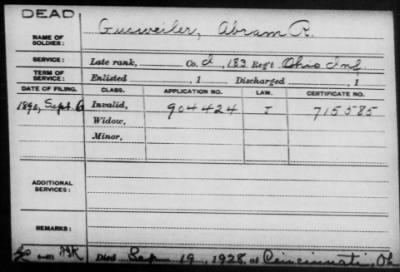 DEAD
NAME OF SOLDIER: Gueweiler, Abram R.
SERVICE: Late rank, Co. I, 183 Reg't Ohio Inf
TERM OF SERVICE: Enlisted , 1 Discharged , 1
DATE OF FILING. CLASS. APPLICATION NO. LAW. CERTIFICATE NO.
1890, Sept. 6 Invalid, 904424 J 715585
Widow,
Minor,
ADDITIONAL SERVICES:
REMARKS:
Died Sep 19, 1928, at Cincinnati, Oh